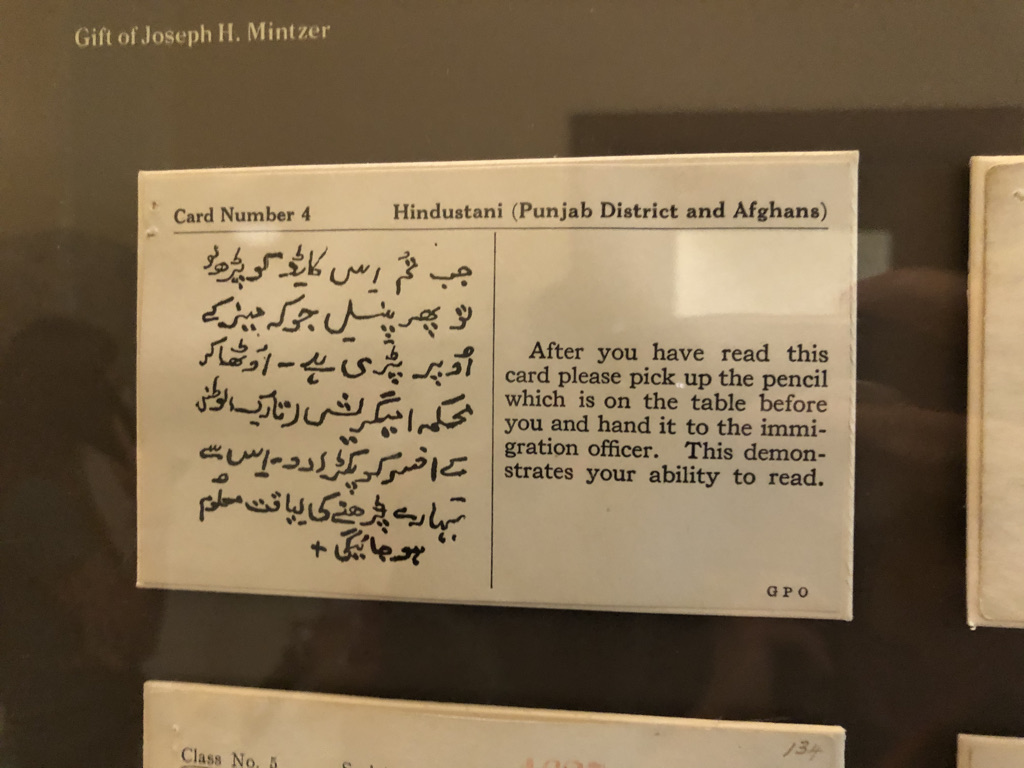 Gift of Joseph H. Mintzer
Card Number 4
Hindustani (Punjab District and Afghans)
جب تُم اِس کارڈ کو پڑھ لو
تو پھر پنسل جو کہ میز کے
اُوپر پڑی ہے - اُوٹھا کر
محکمہ امیگریشن
کے افسر کو پکڑا دو - اِس سے
تہارے پڑھنے کی لیاقت معلُوم
ہو جائیگی +
After you have read this
card please pick up the pencil
which is on the table before
you and hand it to the immi-
gration officer. This demon-
strates your ability to read.
GPO
Class No. 5
134